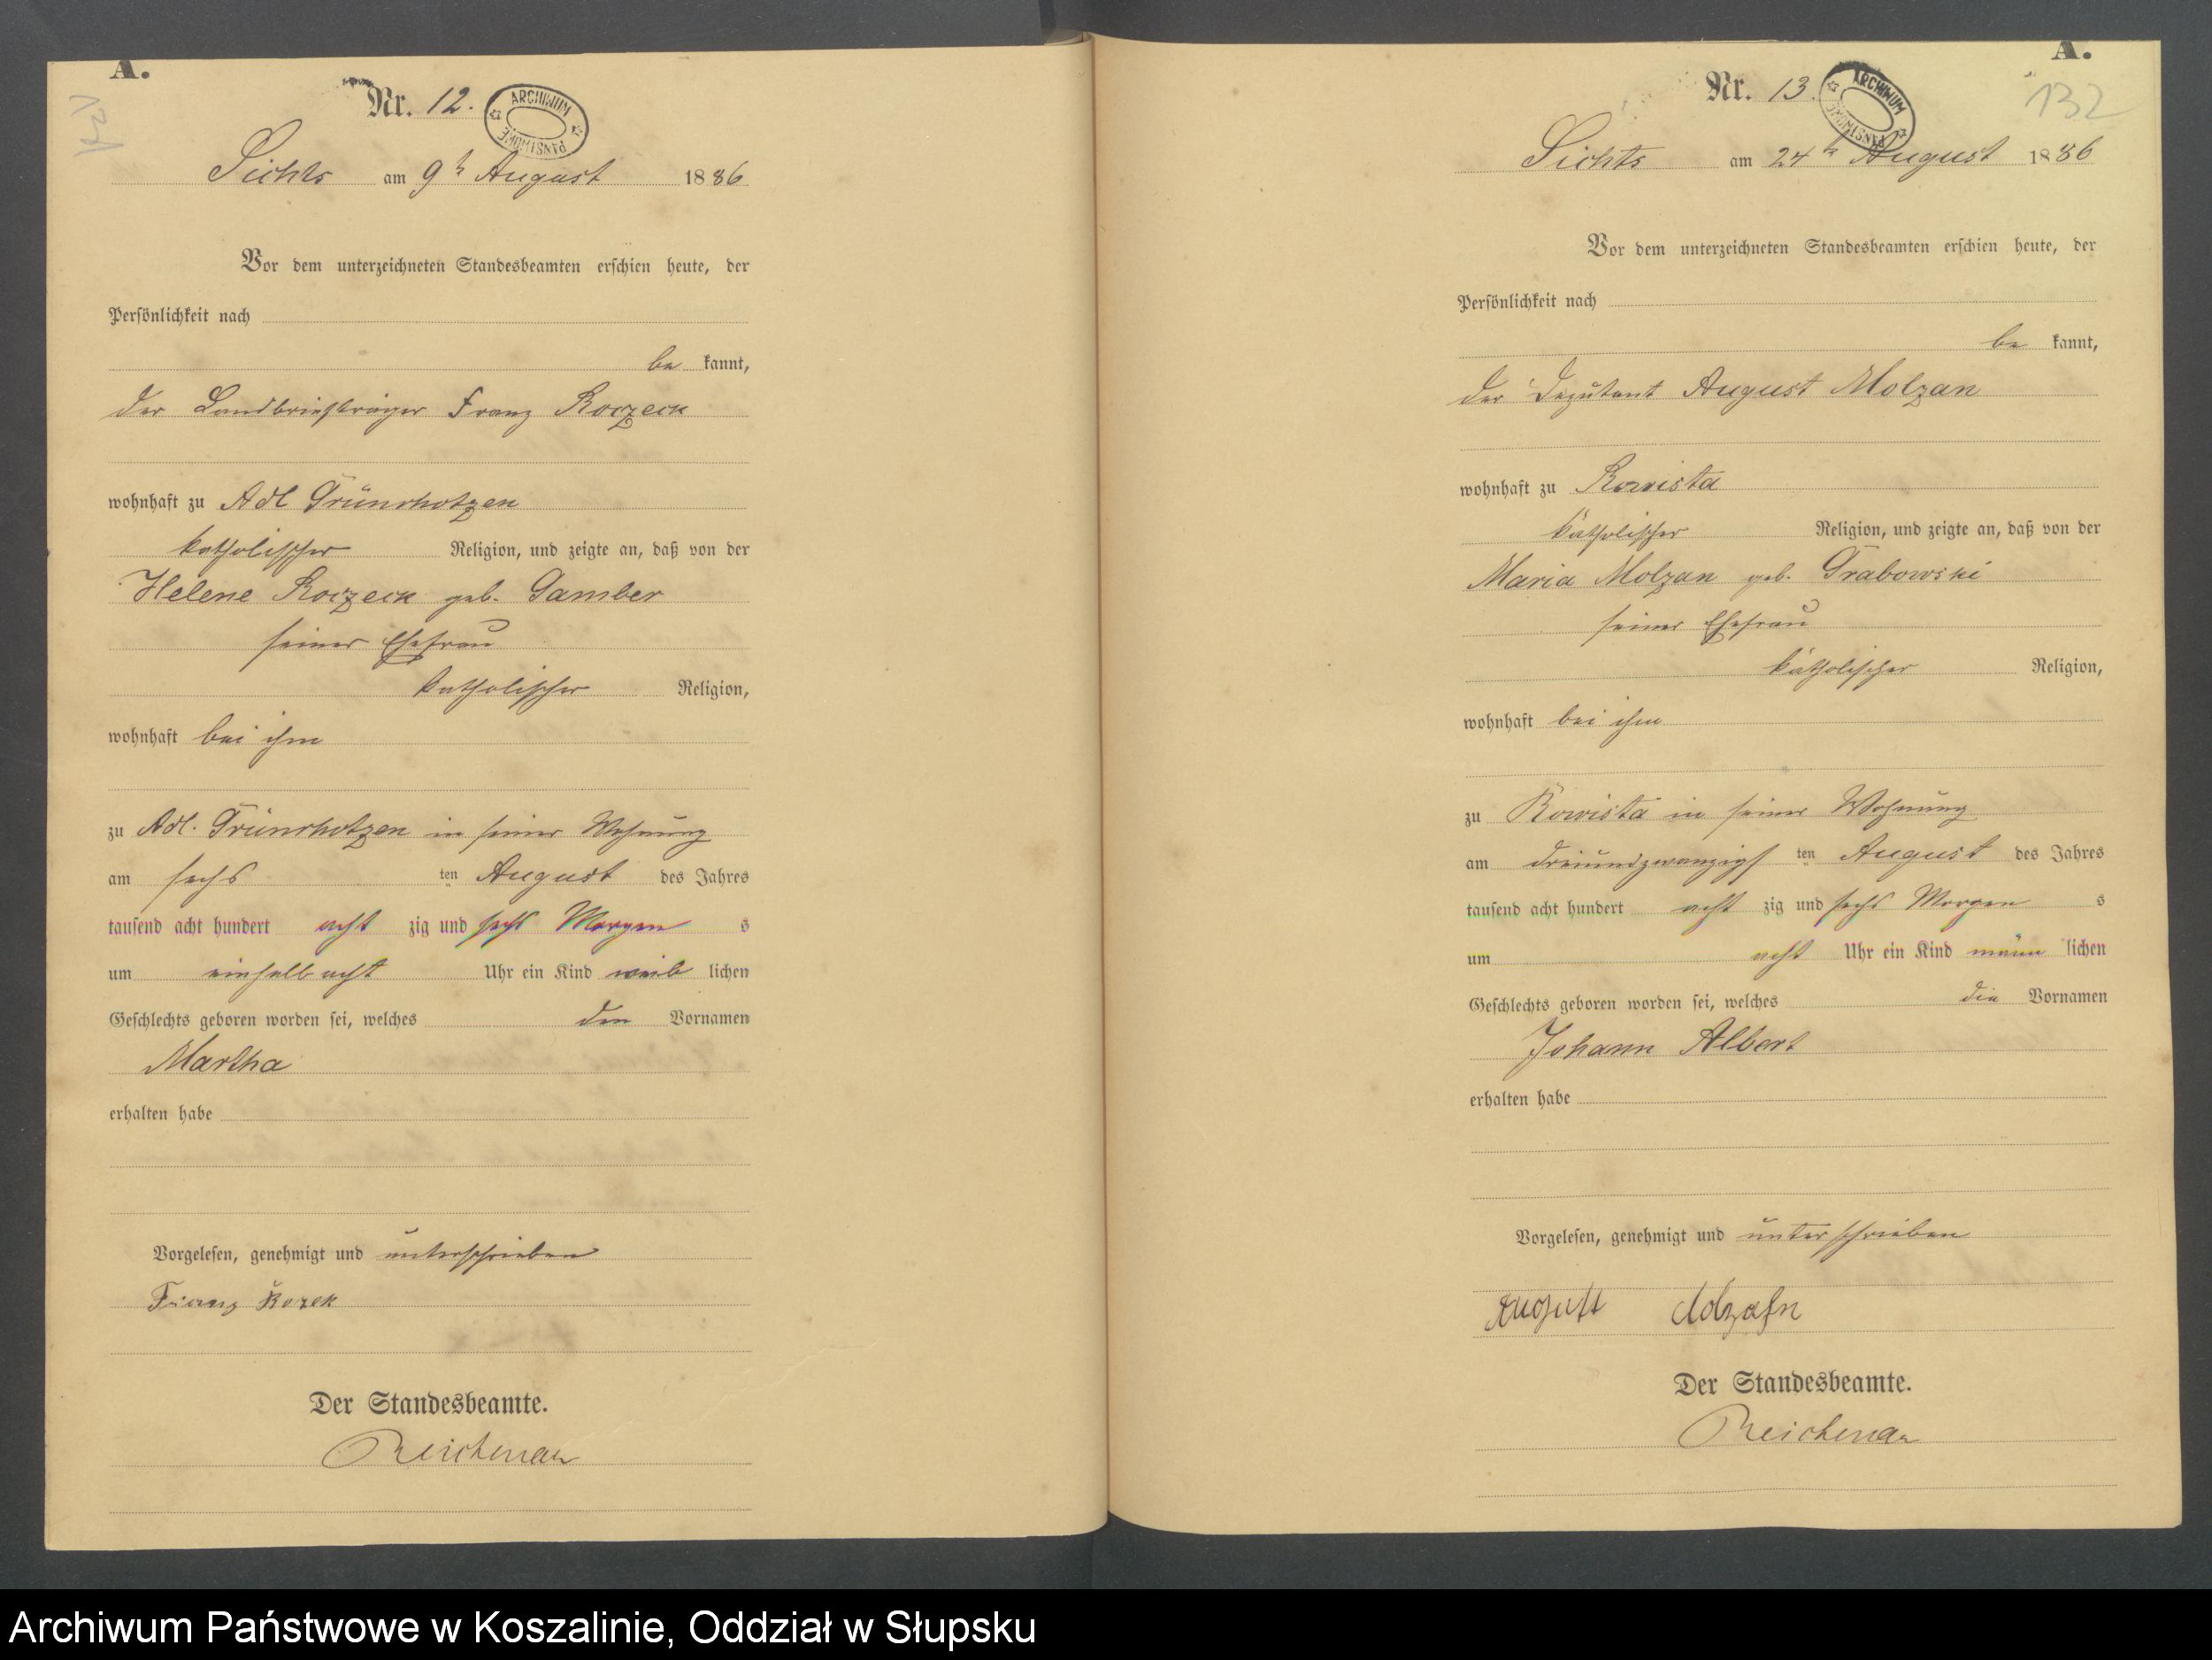 A.
131
Nr. 12.
ARCHIWUM PAŃSTWOWE
Sichts am 9t August 1886
Vor dem unterzeichneten Standesbeamten erschien heute, der
Persönlichkeit nach
be kannt,
der Landbriefträger Franz Koczeck
wohnhaft zu Adl Grünchotzen
katholischer Religion, und zeigte an, daß von der
Helene Koczeck geb. Gamber
seiner Ehefrau
katholischer Religion,
wohnhaft bei ihm
zu Adl. Grünchotzen in seiner Wohnung
am sechs ten August des Jahres
tausend acht hundert acht zig und sechs Morgen s
um einhalb acht Uhr ein Kind weib lichen
Geschlechts geboren worden sei, welches den Vornamen
Martha
erhalten habe
Vorgelesen, genehmigt und unterschrieben
Franz Kozek
Der Standesbeamte.
Reichenau
A.
132
Nr. 13.
ARCHIWUM PAŃSTWOWE
Sichts am 24t August 1886
Vor dem unterzeichneten Standesbeamten erschien heute, der
Persönlichkeit nach
be kannt,
der Deputant August Molzan
wohnhaft zu Kowista
katholischer Religion, und zeigte an, daß von der
Maria Molzan geb. Grabowski
seiner Ehefrau
katholischer Religion,
wohnhaft bei ihm
zu Kowista in seiner Wohnung
am dreiundzwanzigs ten August des Jahres
tausend acht hundert acht zig und sechs Morgen s
um acht Uhr ein Kind männ lichen
Geschlechts geboren worden sei, welches die Vornamen
Johann Albert
erhalten habe
Vorgelesen, genehmigt und unterschrieben
August Molzahn
Der Standesbeamte.
Reichenau
Archiwum Państwowe w Koszalinie, Oddział w Słupsku